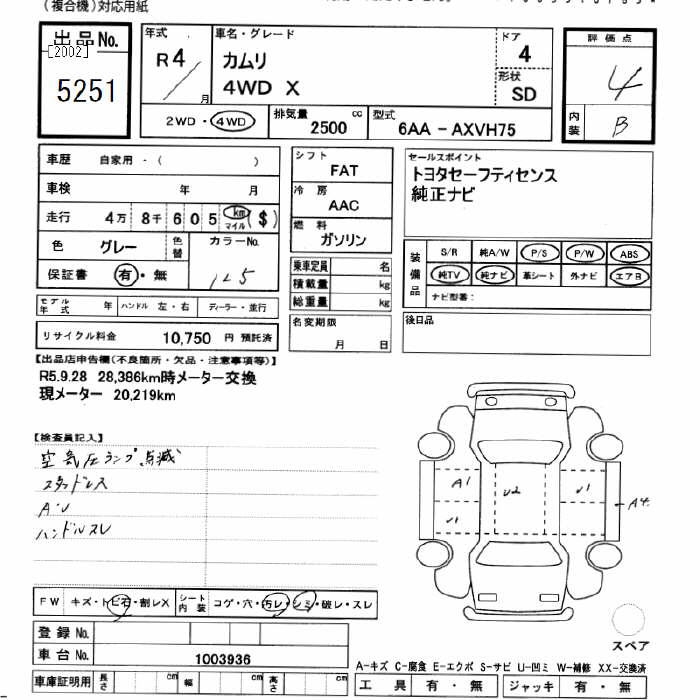 (複合機)対応用紙
出品No.
[2002]
5251
年式 R4/ 月
車名・グレード
カムリ
4WD X
ドア 4
形状 SD
評価点 4
内装 B
2WD・4WD
排気量 2500 cc
型式 6AA-AXVH75
車歴 自家用・( )
車検 年 月
走行 4万 8千 605 km マイル ($)
色 グレー 色替 カラーNo.
保証書 有・無
モデル年式 年 ハンドル 左・右 ディーラー・並行
リサイクル料金 10,750 円 預託済
シフト FAT
冷房 AAC
燃料 ガソリン
乗車定員 名
積載量 kg
総重量 kg
名変期限
月 日
セールスポイント
トヨタセーフティセンス
純正ナビ
装備品
S/R 純A/W P/S P/W ABS
純TV 純ナビ 革シート 外ナビ エアB
ナビ型番:
後日品
【出品店申告欄(不良箇所・欠品・注意事項等)】
R5.9.28 28,386km時メーター交換
現メーター 20,219km
【検査員記入】
空気圧ランプ点滅
スタッドレス
A・U
ハンドルスレ
A1 U2 U1
U1 A4
FW キズ・トビ石・割レX シート内装 コゲ・穴・汚レ・シミ・破レ・スレ
登録No.
車台No. 1003936
車庫証明用 長さ cm 幅 cm 高さ cm
スペア
A-キズ C-腐食 E-エクボ S-サビ U-凹ミ W-補修 XX-交換済
工具 有・無 ジャッキ 有・無